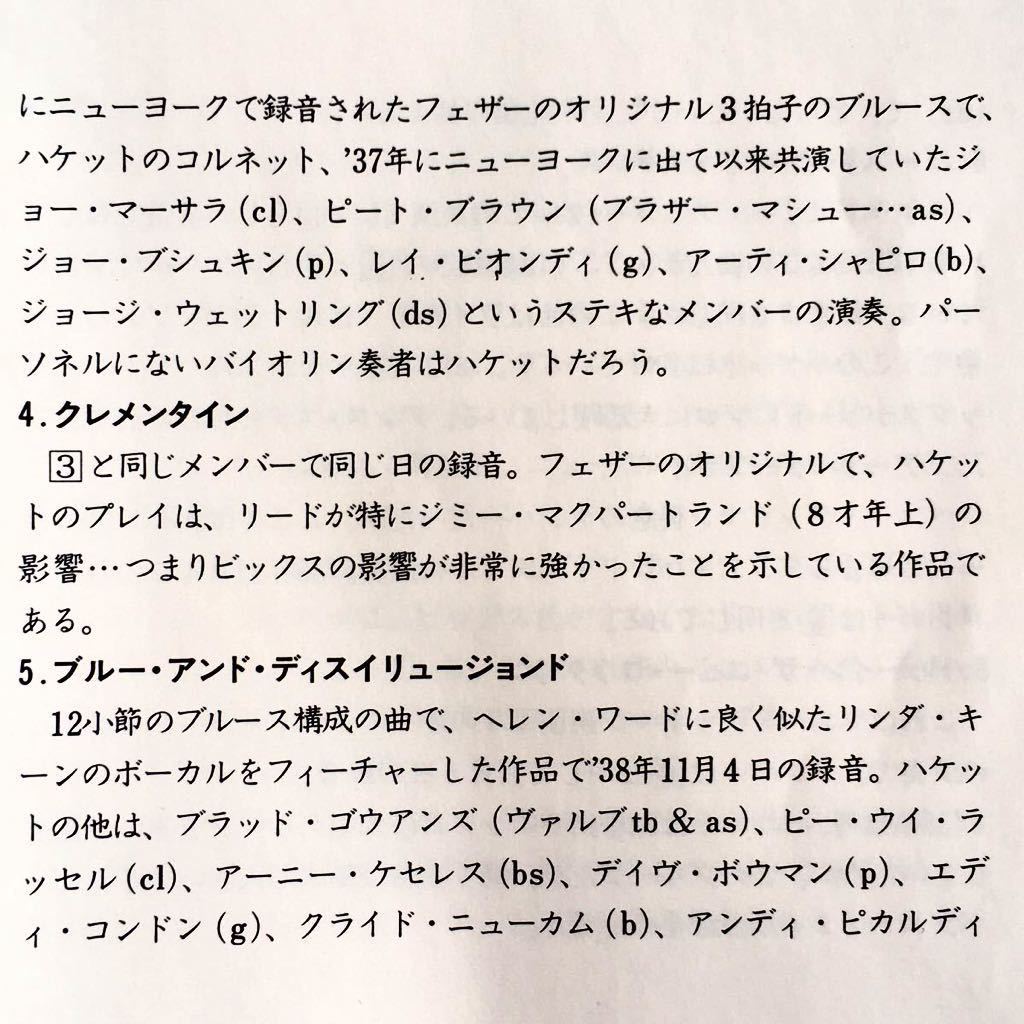 にニューヨークで録音されたフェザーのオリジナル3拍子のブルースで、
ハケットのコルネット、'37年にニューヨークに出て以来共演していたジ
ョー・マーサラ(cl)、ピート・ブラウン(ブラザー・マシュー…as)、
ジョー・ブシュキン(p)、レイ・ビオンディ(g)、アーティ・シャピロ(b)、
ジョージ・ウェットリング(ds)というステキなメンバーの演奏。パー
ソネルにないバイオリン奏者はハケットだろう。
4.クレメンタイン
3と同じメンバーで同じ日の録音。フェザーのオリジナルで、ハケッ
トのプレイは、リードが特にジミー・マクパートランド(8才年上)の
影響…つまりビックスの影響が非常に強かったことを示している作品で
ある。
5.ブルー・アンド・ディスイリュージョンド
12小節のブルース構成の曲で、ヘレン・ワードに良く似たリンダ・キ
ーンのボーカルをフィーチャーした作品で'38年11月4日の録音。ハケッ
トの他は、ブラッド・ゴウアンズ(ヴァルブtb & as)、ピー・ウイ・ラ
ッセル(cl)、アーニー・ケセレス(bs)、デイヴ・ボウマン(p)、エデ
ィ・コンドン(g)、クライド・ニューカム(b)、アンディ・ピカルディ